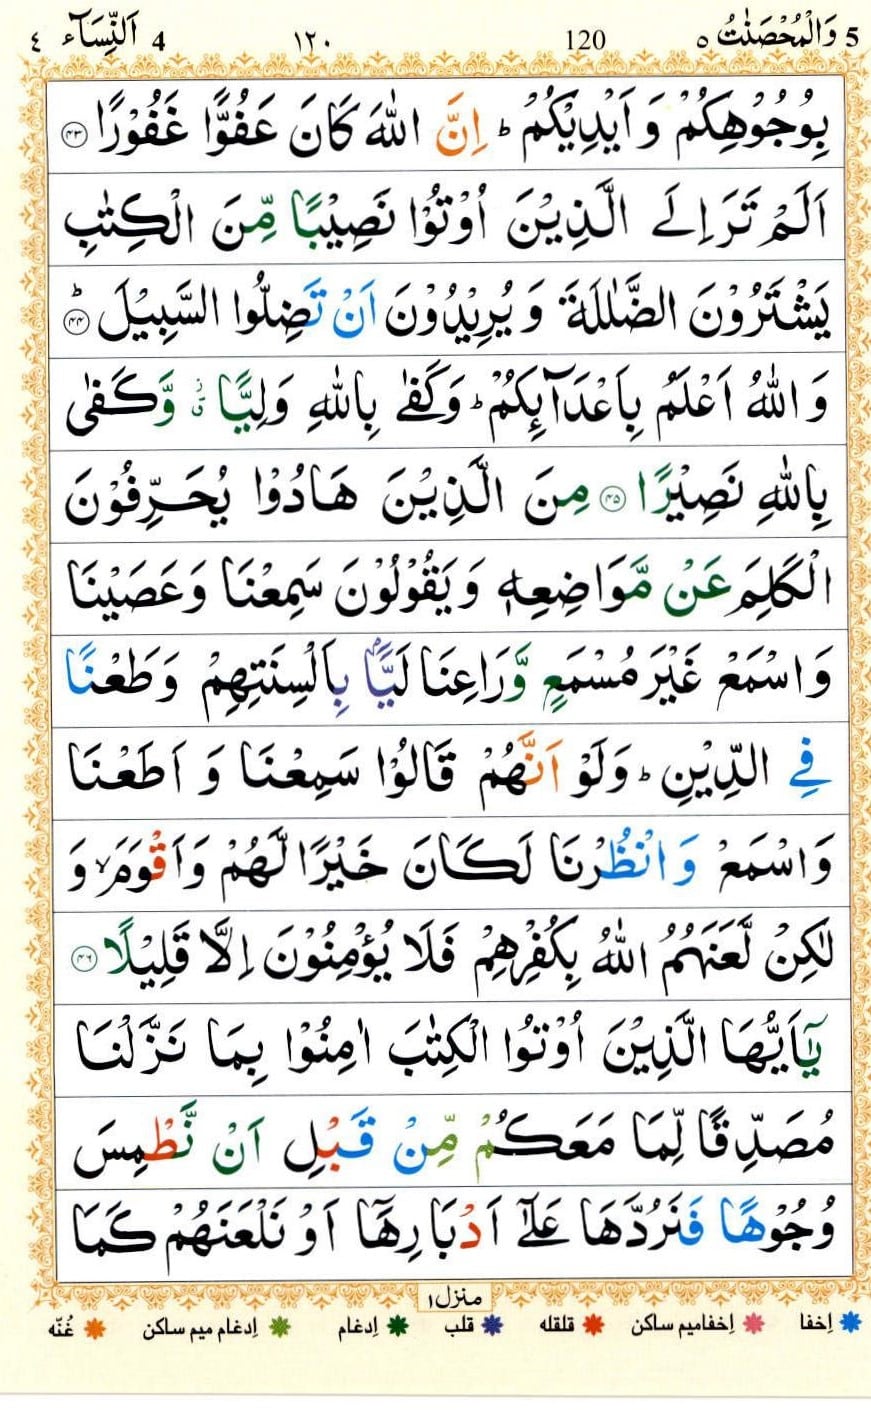 5 وَالْمُحْصَنٰتُ ٥ 120 ١٢٠ 4 اَلنِّسَآء ٤
بِوُجُوْهِكُمْ وَ اَيْدِيْكُمْ ؕ اِنَّ اللّٰهَ كَانَ عَفُوًّا غَفُوْرًا ﴿۴۳﴾
اَلَمْ تَرَ اِلَى الَّذِيْنَ اُوْتُوْا نَصِيْبًا مِّنَ الْكِتٰبِ
يَشْتَرُوْنَ الضَّلٰلَةَ وَ يُرِيْدُوْنَ اَنْ تَضِلُّوا السَّبِيْلَ ؕ ﴿۴۴﴾
وَ اللّٰهُ اَعْلَمُ بِاَعْدَآئِكُمْ ؕ وَكَفٰى بِاللّٰهِ وَلِيًّا ٭ۗ وَّ كَفٰى
بِاللّٰهِ نَصِيْرًا ﴿۴۵﴾ مِنَ الَّذِيْنَ هَادُوْا يُحَرِّفُوْنَ
الْكَلِمَ عَنْ مَّوَاضِعِهٖ وَ يَقُوْلُوْنَ سَمِعْنَا وَ عَصَيْنَا
وَ اسْمَعْ غَيْرَ مُسْمَعٍ وَّ رَاعِنَا لَيًّۢا بِاَلْسِنَتِهِمْ وَ طَعْنًا
فِي الدِّيْنِ ؕ وَلَوْ اَنَّهُمْ قَالُوْا سَمِعْنَا وَ اَطَعْنَا
وَ اسْمَعْ وَ انْظُرْنَا لَكَانَ خَيْرًا لَّهُمْ وَ اَقْوَمَ ۙ وَ
لٰكِنْ لَّعَنَهُمُ اللّٰهُ بِكُفْرِهِمْ فَلَا يُؤْمِنُوْنَ اِلَّا قَلِيْلًا ﴿۴۶﴾
يٰۤاَيُّهَا الَّذِيْنَ اُوْتُوا الْكِتٰبَ اٰمِنُوْا بِمَا نَزَّلْنَا
مُصَدِّقًا لِّمَا مَعَكُمْ مِّنْ قَبْلِ اَنْ نَّطْمِسَ
وُجُوْهًا فَنَرُدَّهَا عَلٰۤى اَدْبَارِهَاۤ اَوْ نَلْعَنَهُمْ كَمَا
منزل ۱
اِخفا اِخفامیم ساکن قلقله قلب اِدغام اِدغام میم ساکن غُنّه